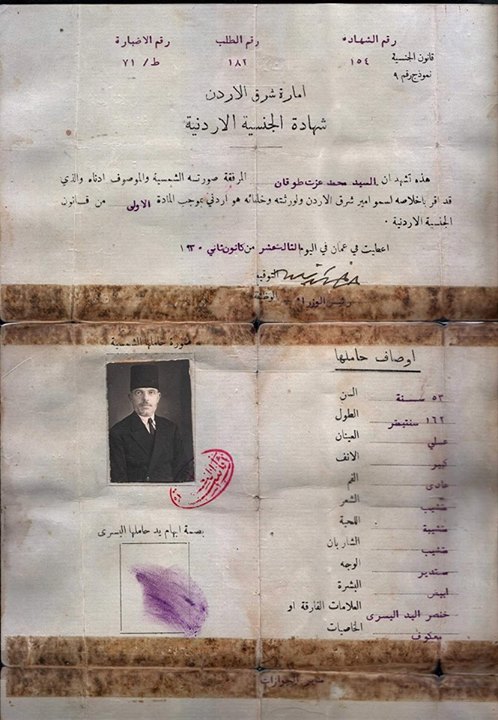 رقم الشهادة رقم الطلب رقم الاضبارة
١٥٤ ١٨٢ ط/ ٧١
قانون الجنسية
نموذج رقم ٩
امارة شرق الاردن
شهادة الجنسية الاردنية
هذه تشهد ان السيد محمد عزت طوقان المرفقة صورته الشمسية والموصوف ادناه والذي
قد اقر باخلاصه لسمو امير شرق الاردن ولورثته وخلفائه هو اردني بموجب المادة الاولى من قانون
الجنسية الاردنية .
اعطيت في عمان في اليوم الثالث عشر من كانون ثاني ١٩٣٠
التوقيع
الوظيفة رئيس الوزراء
صورة حاملها الشمسية
اوصاف حاملها
السن ٥٣ سنة
الطول ١٦٢ سنتيمتر
العينان عسلي
الانف كبير
الفم عادي
الشعر مشيب
اللحية مشيبة
الشاربان مشيب
الوجه مستدير
البشرة ابيض
العلامات الفارقة او خنصر اليد اليسرى
الخاصيات معكوف
بصمة ابهام يد حاملها اليسرى
مدير الجوازات